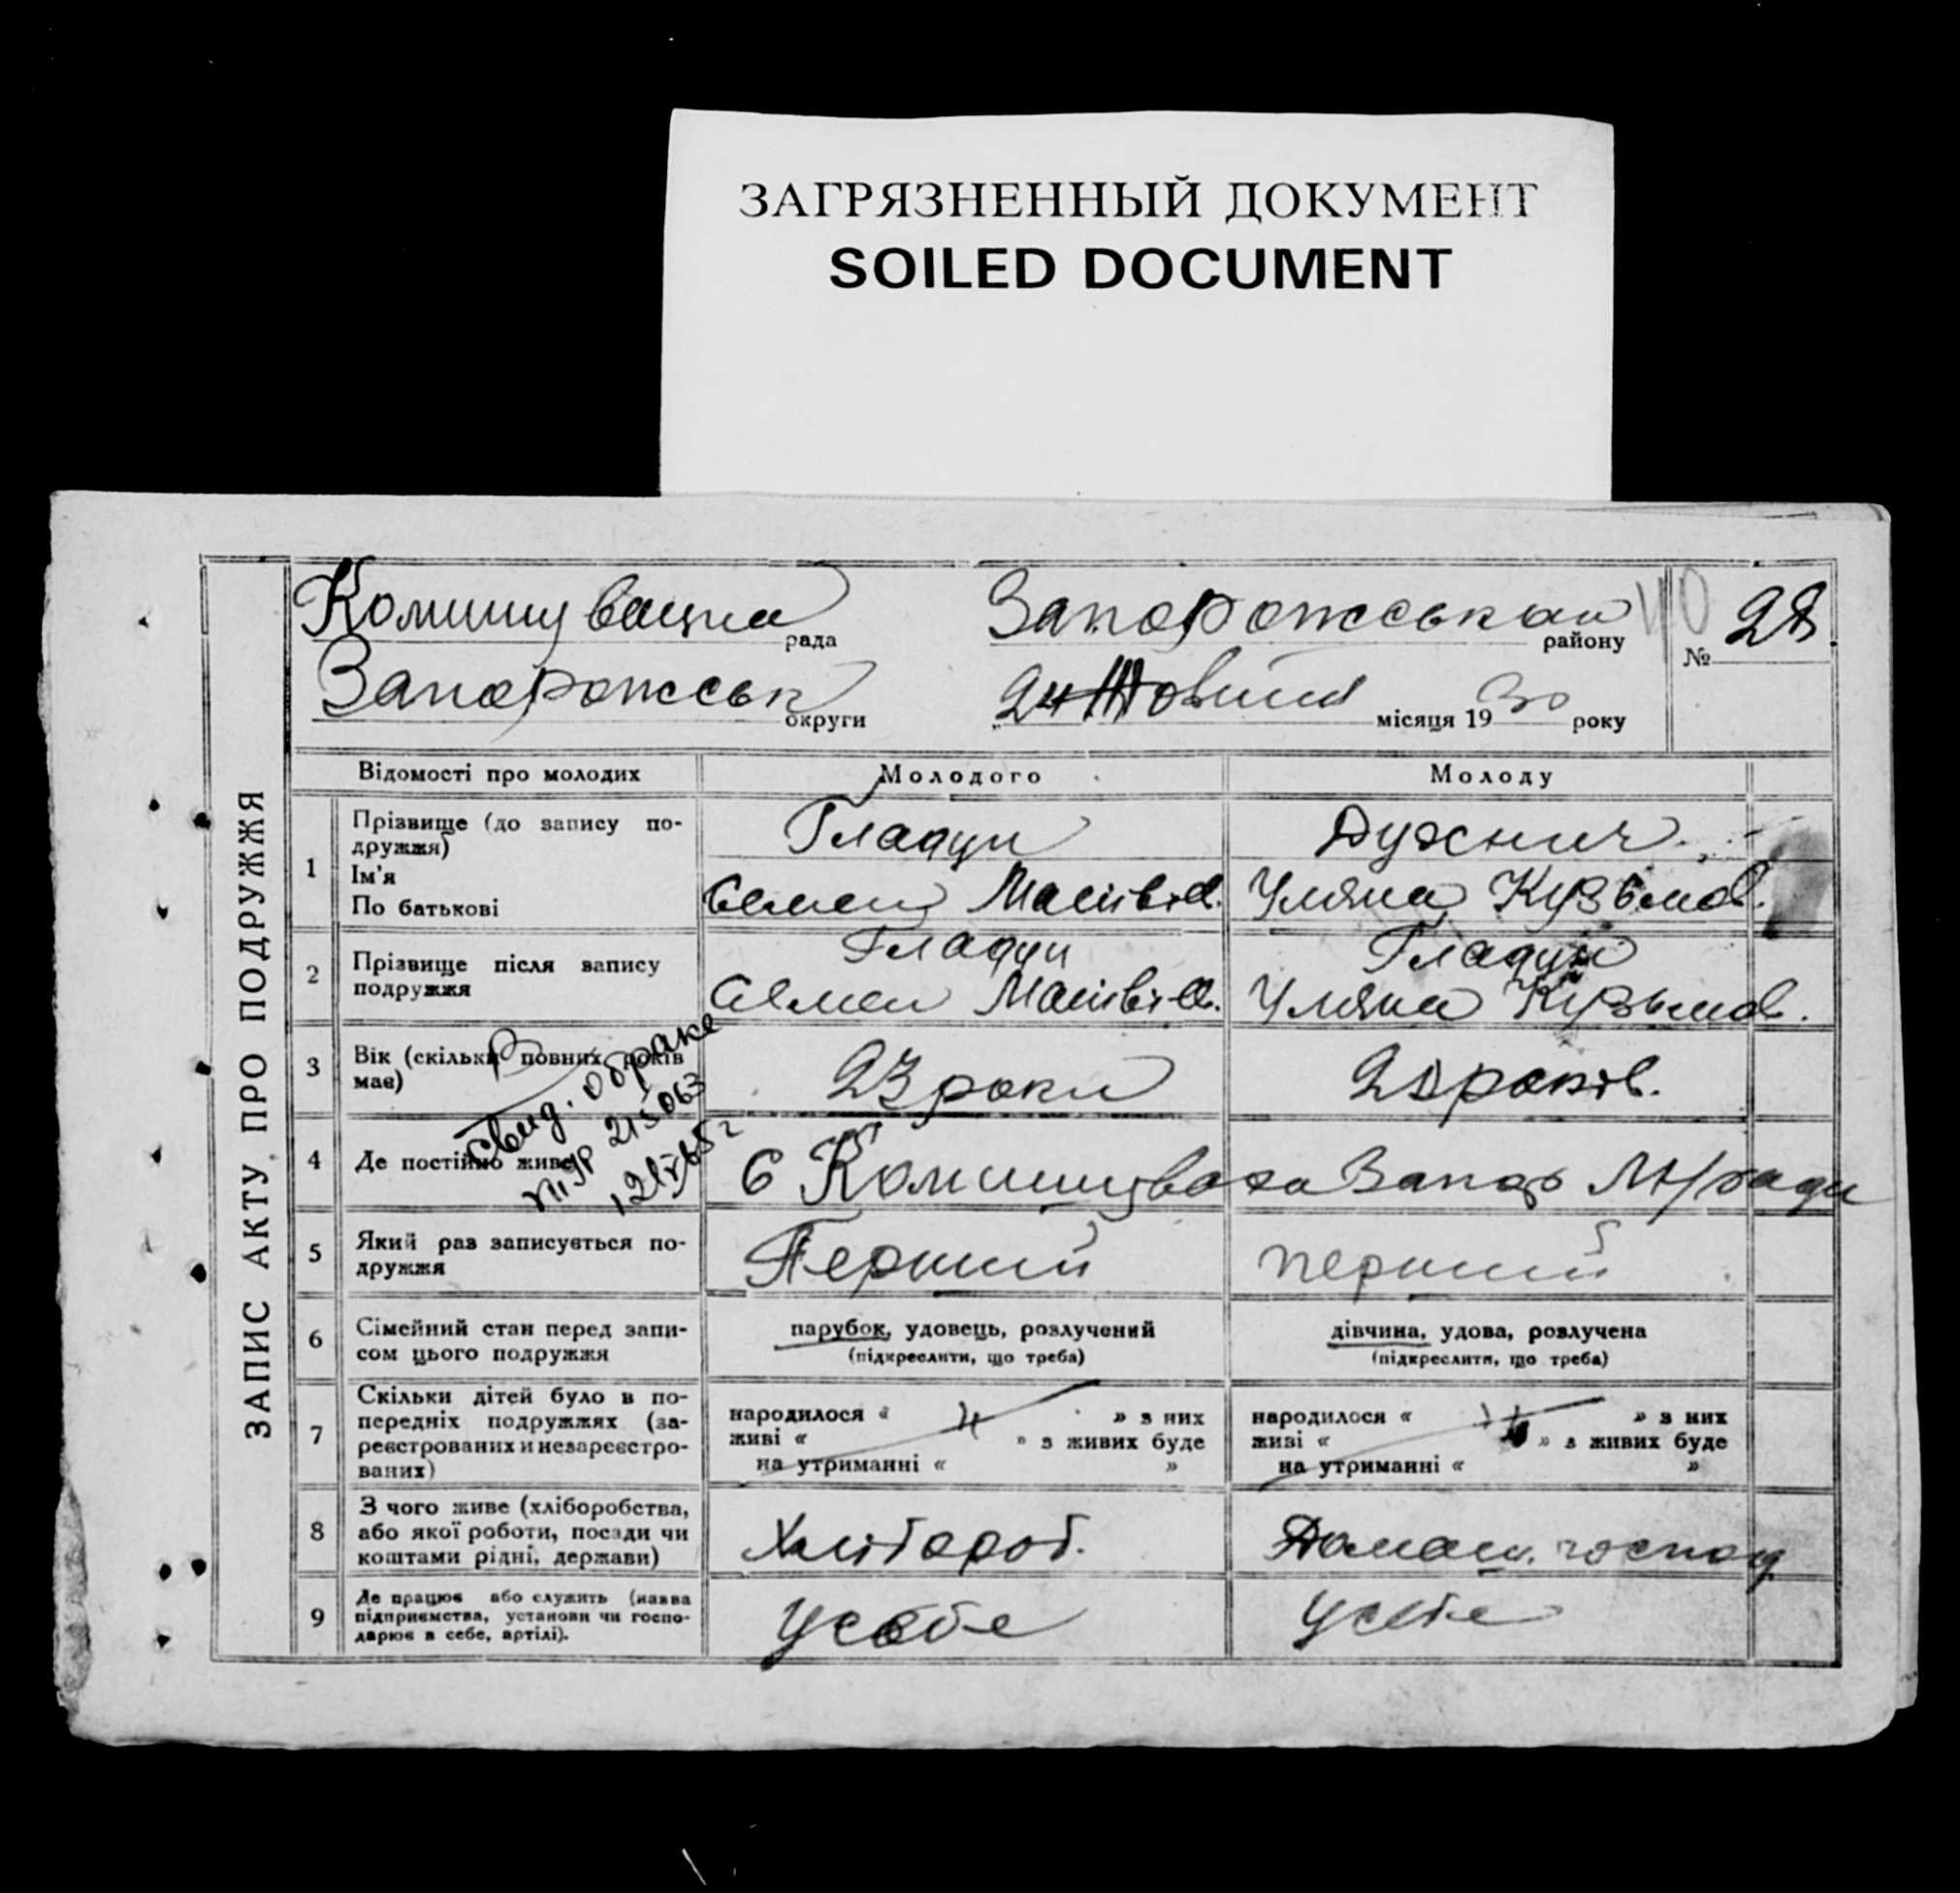 ЗАГРЯЗНЕННЫЙ ДОКУМЕНТ
SOILED DOCUMENT
ЗАПИС АКТУ ПРО ПОДРУЖЖЯ
рада
району
№ 28
Запорожськ округи
місяця 1930 року
Відомості про молодих
Молодого
Молоду
1
Прізвище (до запису по-
дружжя)
Ім'я
По батькові
Семен
Уляна Кузьмов.
2
Прізвище після запису
подружжя
Семен
Уляна Кузьмов.
3
Вік (скільки повних років
має)
23 роки
років.
свид. о браке
4
Де постійно живе
5
Який раз записується по-
дружжя
Перший
перший
6
Сімейний стан перед запи-
сом цього подружжя
парубок, удовець, розлучений
(підкреслити, що треба)
дівчина, удова, розлучена
(підкреслити, що треба)
7
Скільки дітей було в по-
передніх подружжях (за-
реєстрованих и незареєстро-
ваних)
народилося « » з них
живі « » з живих буде
на утриманні « »
народилося « » з них
живі « » з живих буде
на утриманні « »
8
З чого живе (хліборобства,
або якої роботи, посади чи
коштами рідні, держави)
Хлібороб.
Домаш. господ
9
Де працює або служить (назва
підприємства, установи чи госпо-
дарює в себе, артілі).
У себе
У себе